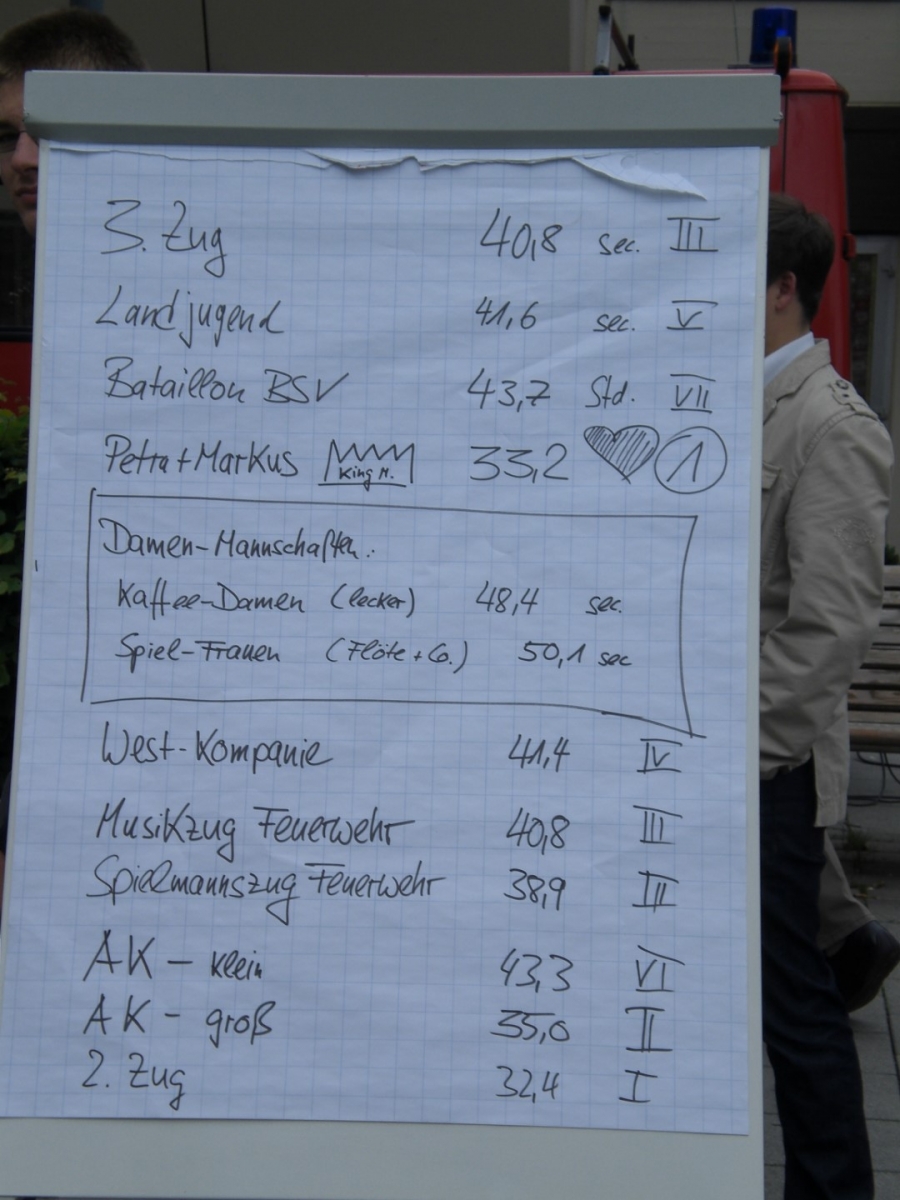 3. Zug 40,8 sec. III
Landjugend 41,6 sec. V
Bataillon BSV 43,7 Std. VII
Petra + Markus King M. 33,2 1
Damen-Mannschaften:
Kaffee-Damen (lecker) 48,4 sec.
Spiel-Frauen (Flöte + Co.) 50,1 sec
West-Kompanie 41,4 IV
Musikzug Feuerwehr 40,8 III
Spielmannszug Feuerwehr 38,9 III
AK - klein 43,3 VI
AK - groß 35,0 II
2. Zug 32,4 I